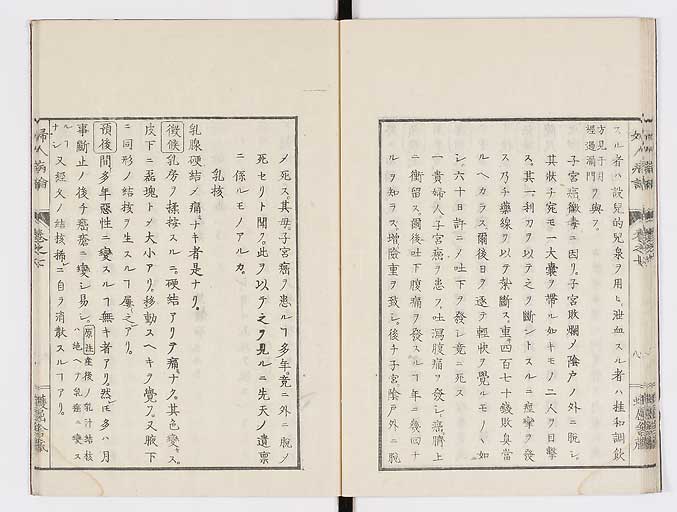 スル者ハ設兒的兒泉ヲ用ヒ、泄血スル者ハ桂和調飲
方見于月經過漏門ヲ與フ。
子宮癌黴毒ニ因リ。子宮敗爛メ陰戸ノ外ニ脱シ。
其狀チ宛モ一大囊ヲ帶ル如キモノ二人ヲ目擊
ス。其一利刀ヲ以テ之ヲ斷ントスルニ痙攣ヲ發
ス乃チ藥線ヲ以テ紮斷ス。重四百七十錢敗臭當
ルヘカラス爾後日ヲ逐テ輕快ヲ覺ルモノヽ如
シ。六十日許ニメ吐下ヲ發シ竟ニ死ス
一貴婦人子宮癌ヲ患フ。吐瀉腹痛ヲ發シ。癌臍上
ニ衝留ス爾後吐下腹痛ヲ發スルヿ年ニ幾四十
ルヲ知ラス。增險重ヲ致シ。後チ子宮陰戸外ニ脱
メ死ス。其母子宮癌ヲ患ルヿ多年。竟ニ外ニ脱メ
死セリト聞ク。此ヲ以テ之ヲ見ルニ先天ノ遺稟
ニ係ルモノアルカ。
乳核
乳腺硬結メ痛ナキ者是ナリ。
徴候 乳房ヲ揉按スルニ。硬結アリテ痛ナク。其色變セス。
皮下ニ磊塊トメ大小アリ。移動スヘキヲ覺フ。又腋下
ニ同形ノ結核ヲ生スルヿ屢之アリ。
預後 間多年惡性ニ變スルヿ無キ者アリ。然𪜈多ハ月
事斷止ノ後チ癌瘡ニ變シ易シ。原註産後ノ乳汁結核ハ絶ヘテ乳癌ニ變ス
ルヿナシ又經久ノ結核稀ニ自ラ消散スルヿアリ。
婦人病論
卷之七